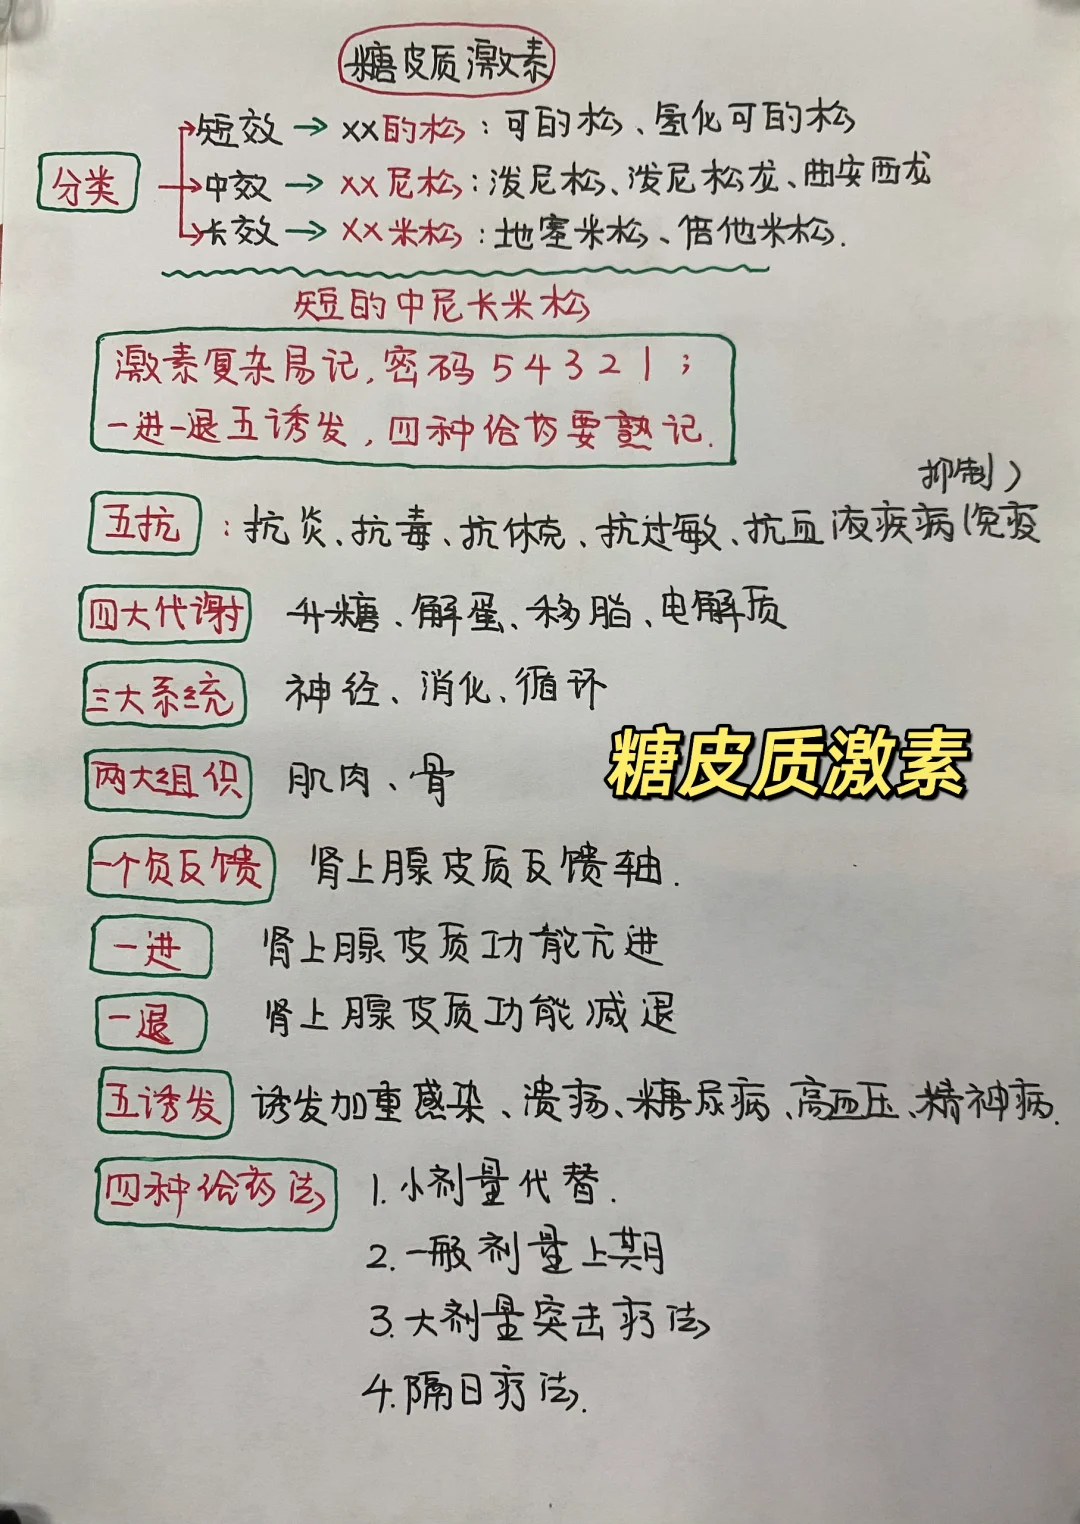 糖皮质激素
分类
短效→xx的松：可的松、氢化可的松
中效→xx尼松：泼尼松、泼尼松龙、曲安西龙
长效→xx米松：地塞米松、倍他米松.
短的中尼长米松
激素复杂易记,密码54321；
一进一退五诱发,四种给药要熟记.
五抗：抗炎、抗毒、抗休克、抗过敏、抗血液疾病(免疫
抑制)
四大代谢 升糖、解蛋、移脂、电解质
三大系统 神经、消化、循环
糖皮质激素
两大组织 肌肉、骨
一个负反馈 肾上腺皮质反馈轴.
一进 肾上腺皮质功能亢进
一退 肾上腺皮质功能减退
五诱发 诱发加重感染、溃疡、糖尿病、高血压、精神病.
四种给药法 1.小剂量代替.
2.一般剂量上期
3.大剂量突击疗法
4.隔日疗法.